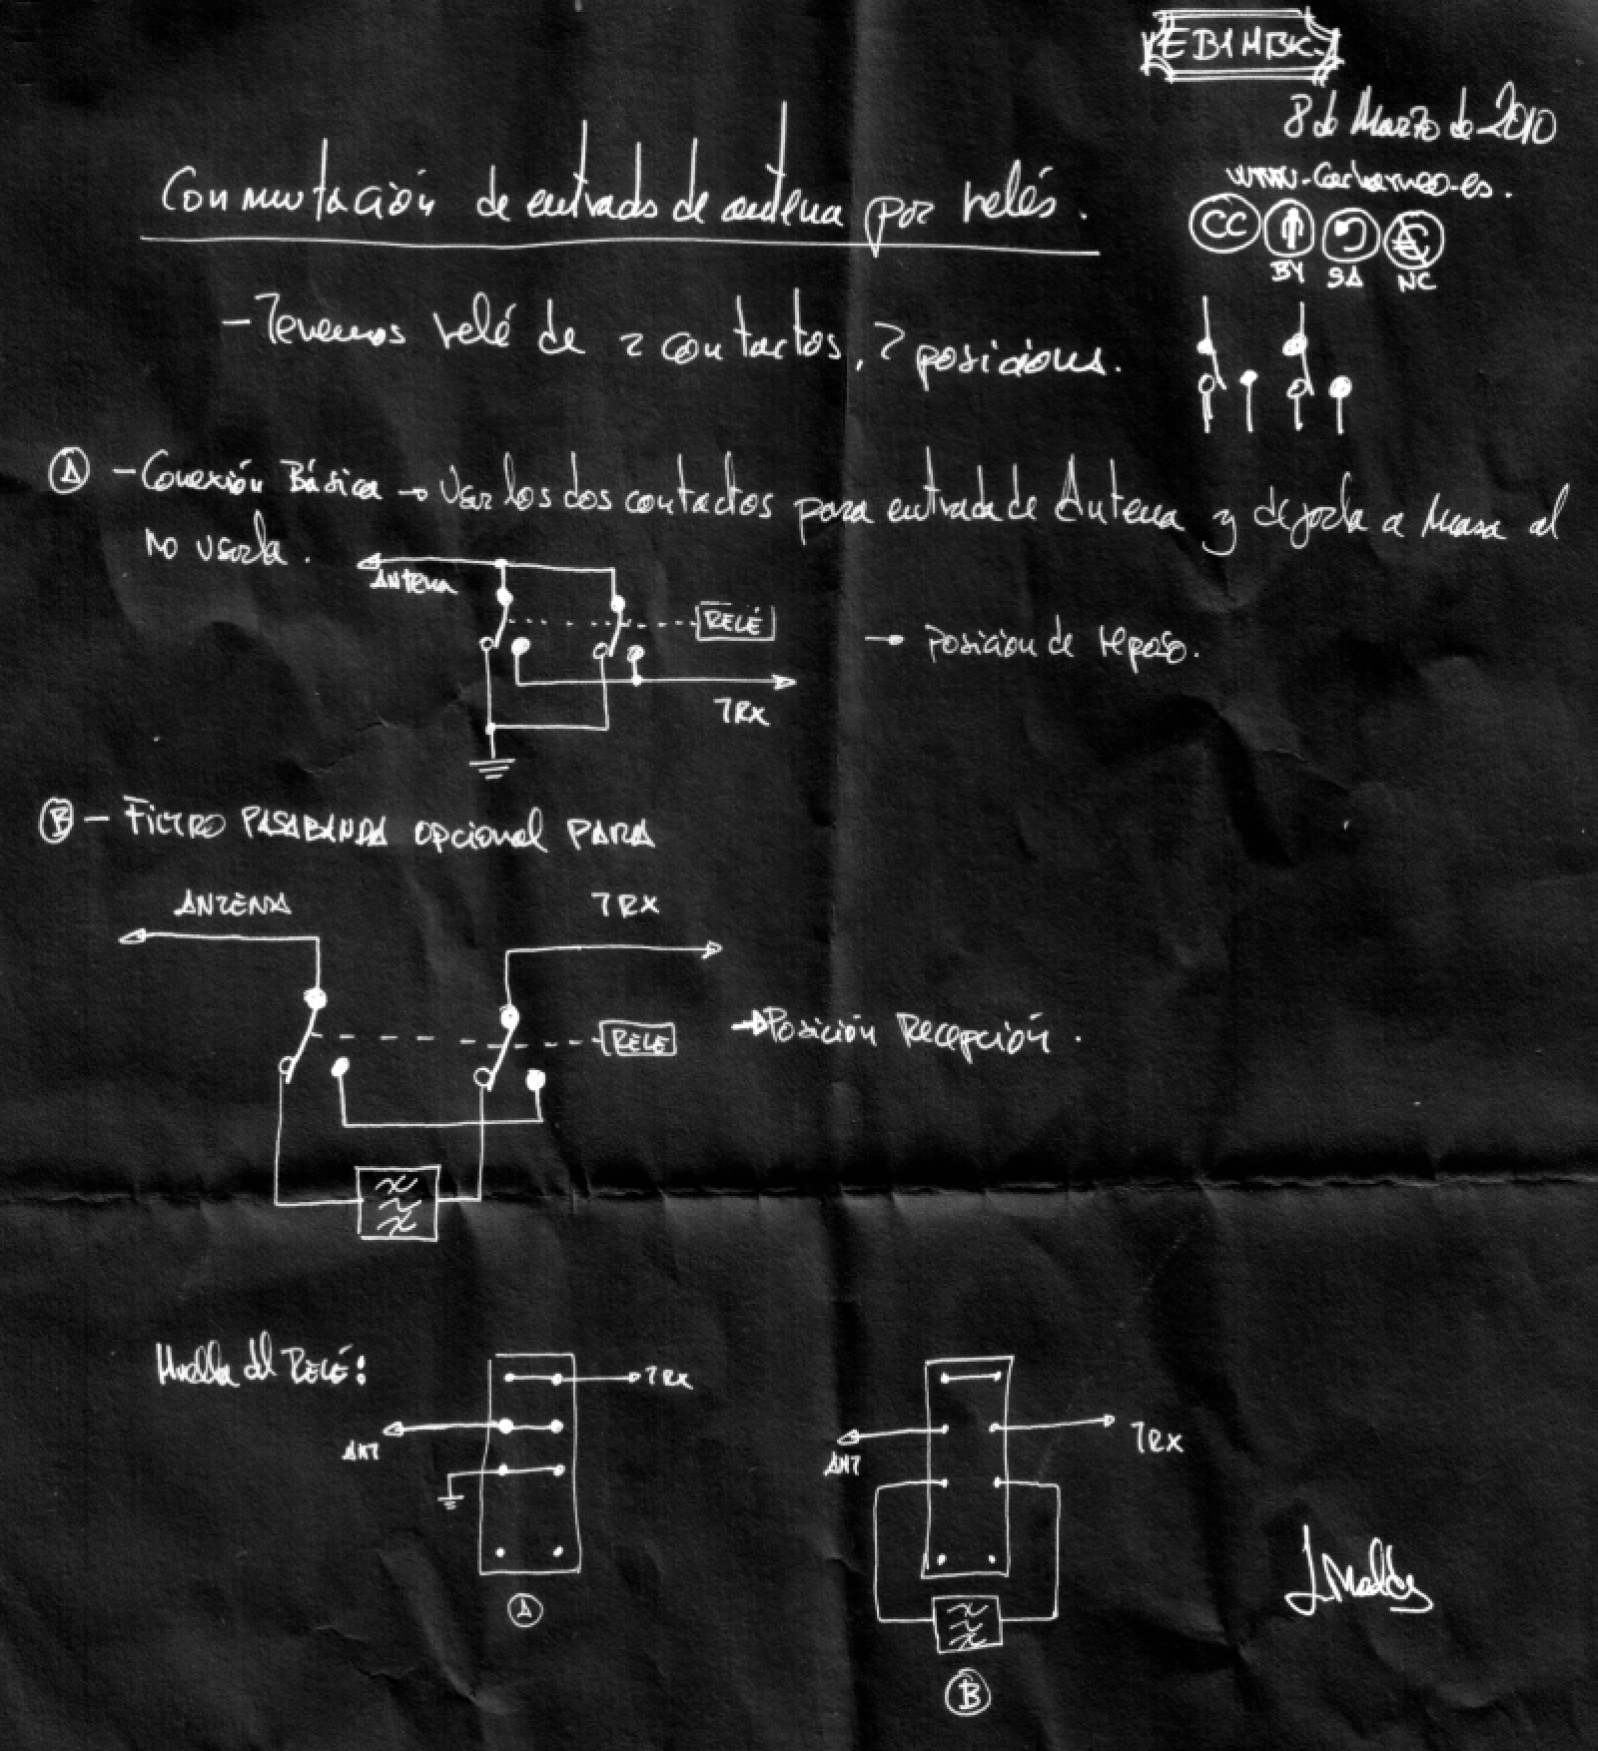 EB1HBK
8 de Marzo de 2010
Conmutación de entrada de antena por relés.
CC
BY SA NC
- Tenemos relé de 2 contactos, 2 posicions.
A - Conexión Básica → Usar los dos contactos para entrada de Antena y dejarla a masa al
no usarla.
ANTENA
RELÉ
→ Posición de reposo.
TRX
B - FILTRO PASABANDA opcional PARA
ANTENA
TRX
RELE
→ Posición Recepción.
Huella del RELÉ:
TRX
ANT
TRX
ANT
A
B